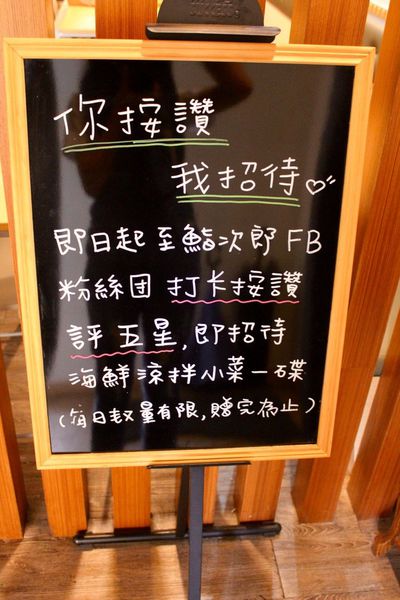 你按讚
我招待
即日起至鮨次郎FB
粉絲団 打卡按讚
評五星,即招待
海鮮涼拌小菜一碟
(每日数量有限,贈完為止)